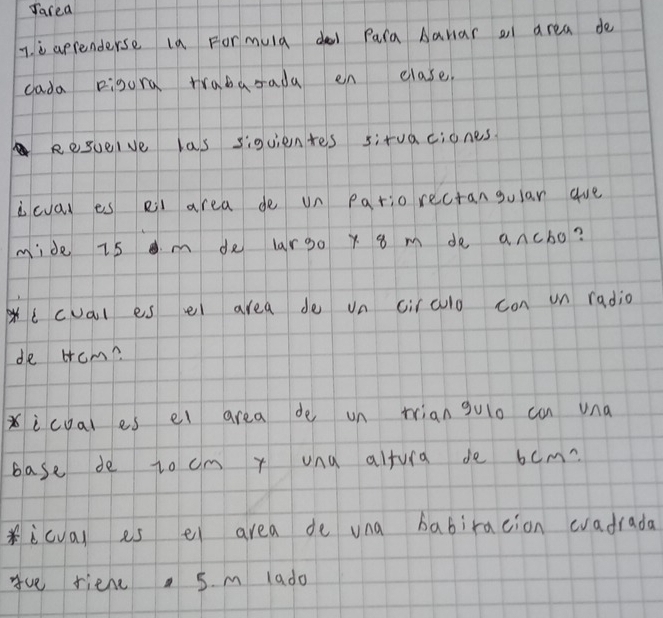 Tarea
1. ¿ aprenderse la Formula del Para hallar el area de
cada Figura trabajada en clase.
Resuelve las siguientes situaciones.
¿ cual es el area de un Patio rectangular que
mide 15 m de largo y 8 m de ancho?
* ¿ cual es el area de un circulo con un radio
de 4cm?
* ¿ cual es el area de un triangulo con una
base de 10 cm y una altura de 6cm?
* ¿ cual es el area de una habitacion cuadrada
que tiene 5.m lado